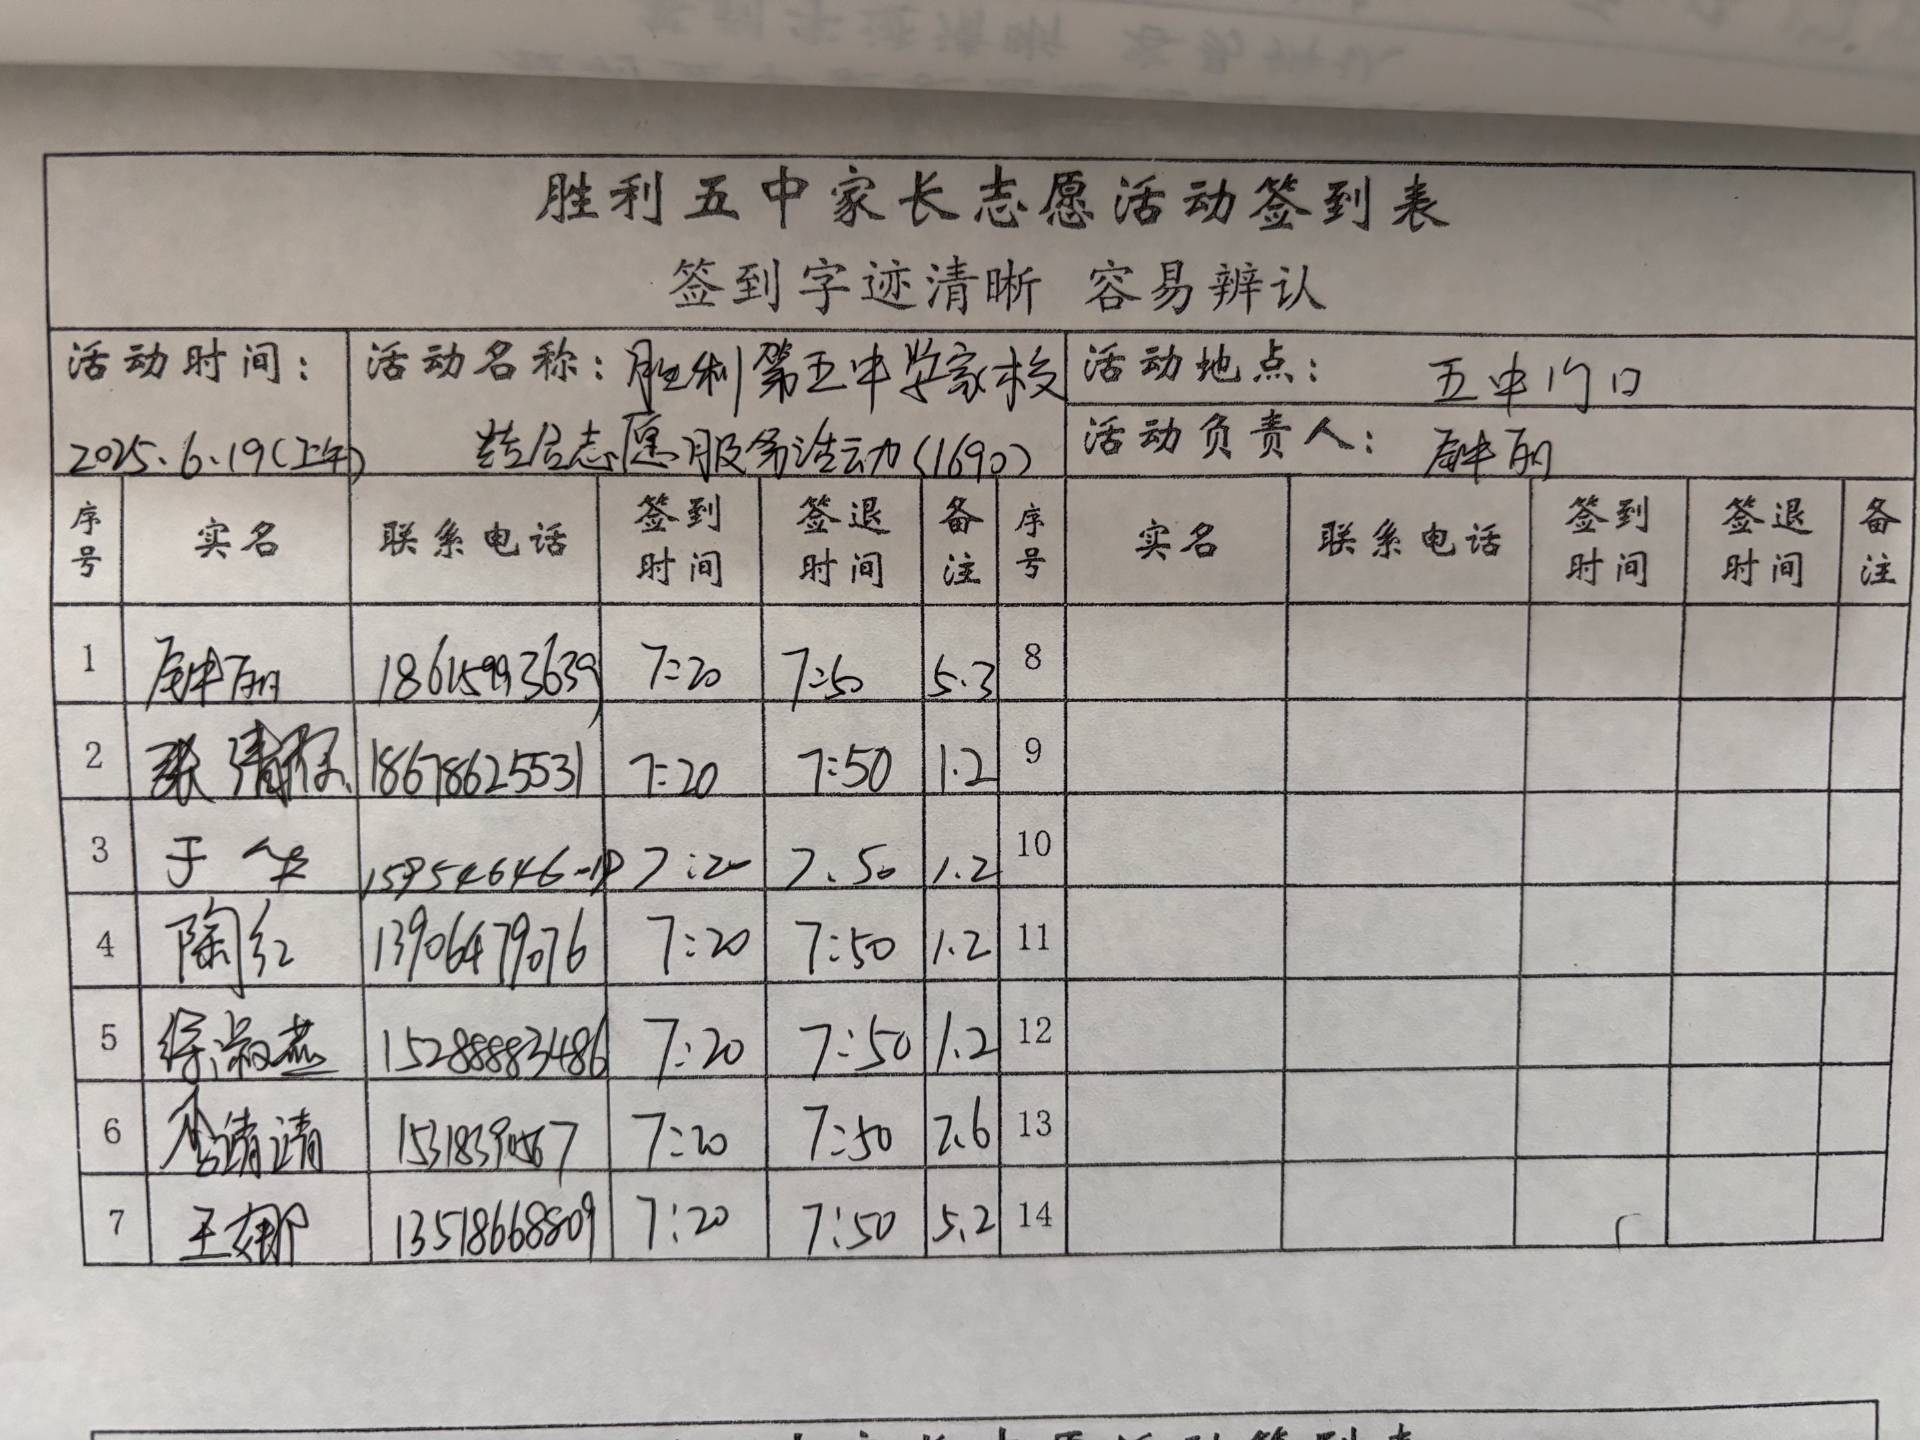 胜利五中家长志愿活动签到表
签到字迹清晰 容易辨认
活动时间: 2025.6.19(上午)
活动名称: 胜利第五中学家校
志愿服务活动(1690)
活动地点: 五中门口
活动负责人: 丽
序号 实名 联系电话 签到时间 签退时间 备注 序号 实名 联系电话 签到时间 签退时间 备注
1 丽 18615993639 7:20 7:50 5.3 8
2 张清 18678625531 7:20 7:50 1.2 9
3 于 7:20 7.50 1.2 10
4 陶红 13906479076 7:20 7:50 1.2 11
5 徐淑燕 15288883486 7:20 7:50 1.2 12
6 7:20 7:50 7.6 13
7 王娜 13518668809 7:20 7:50 5.2 14